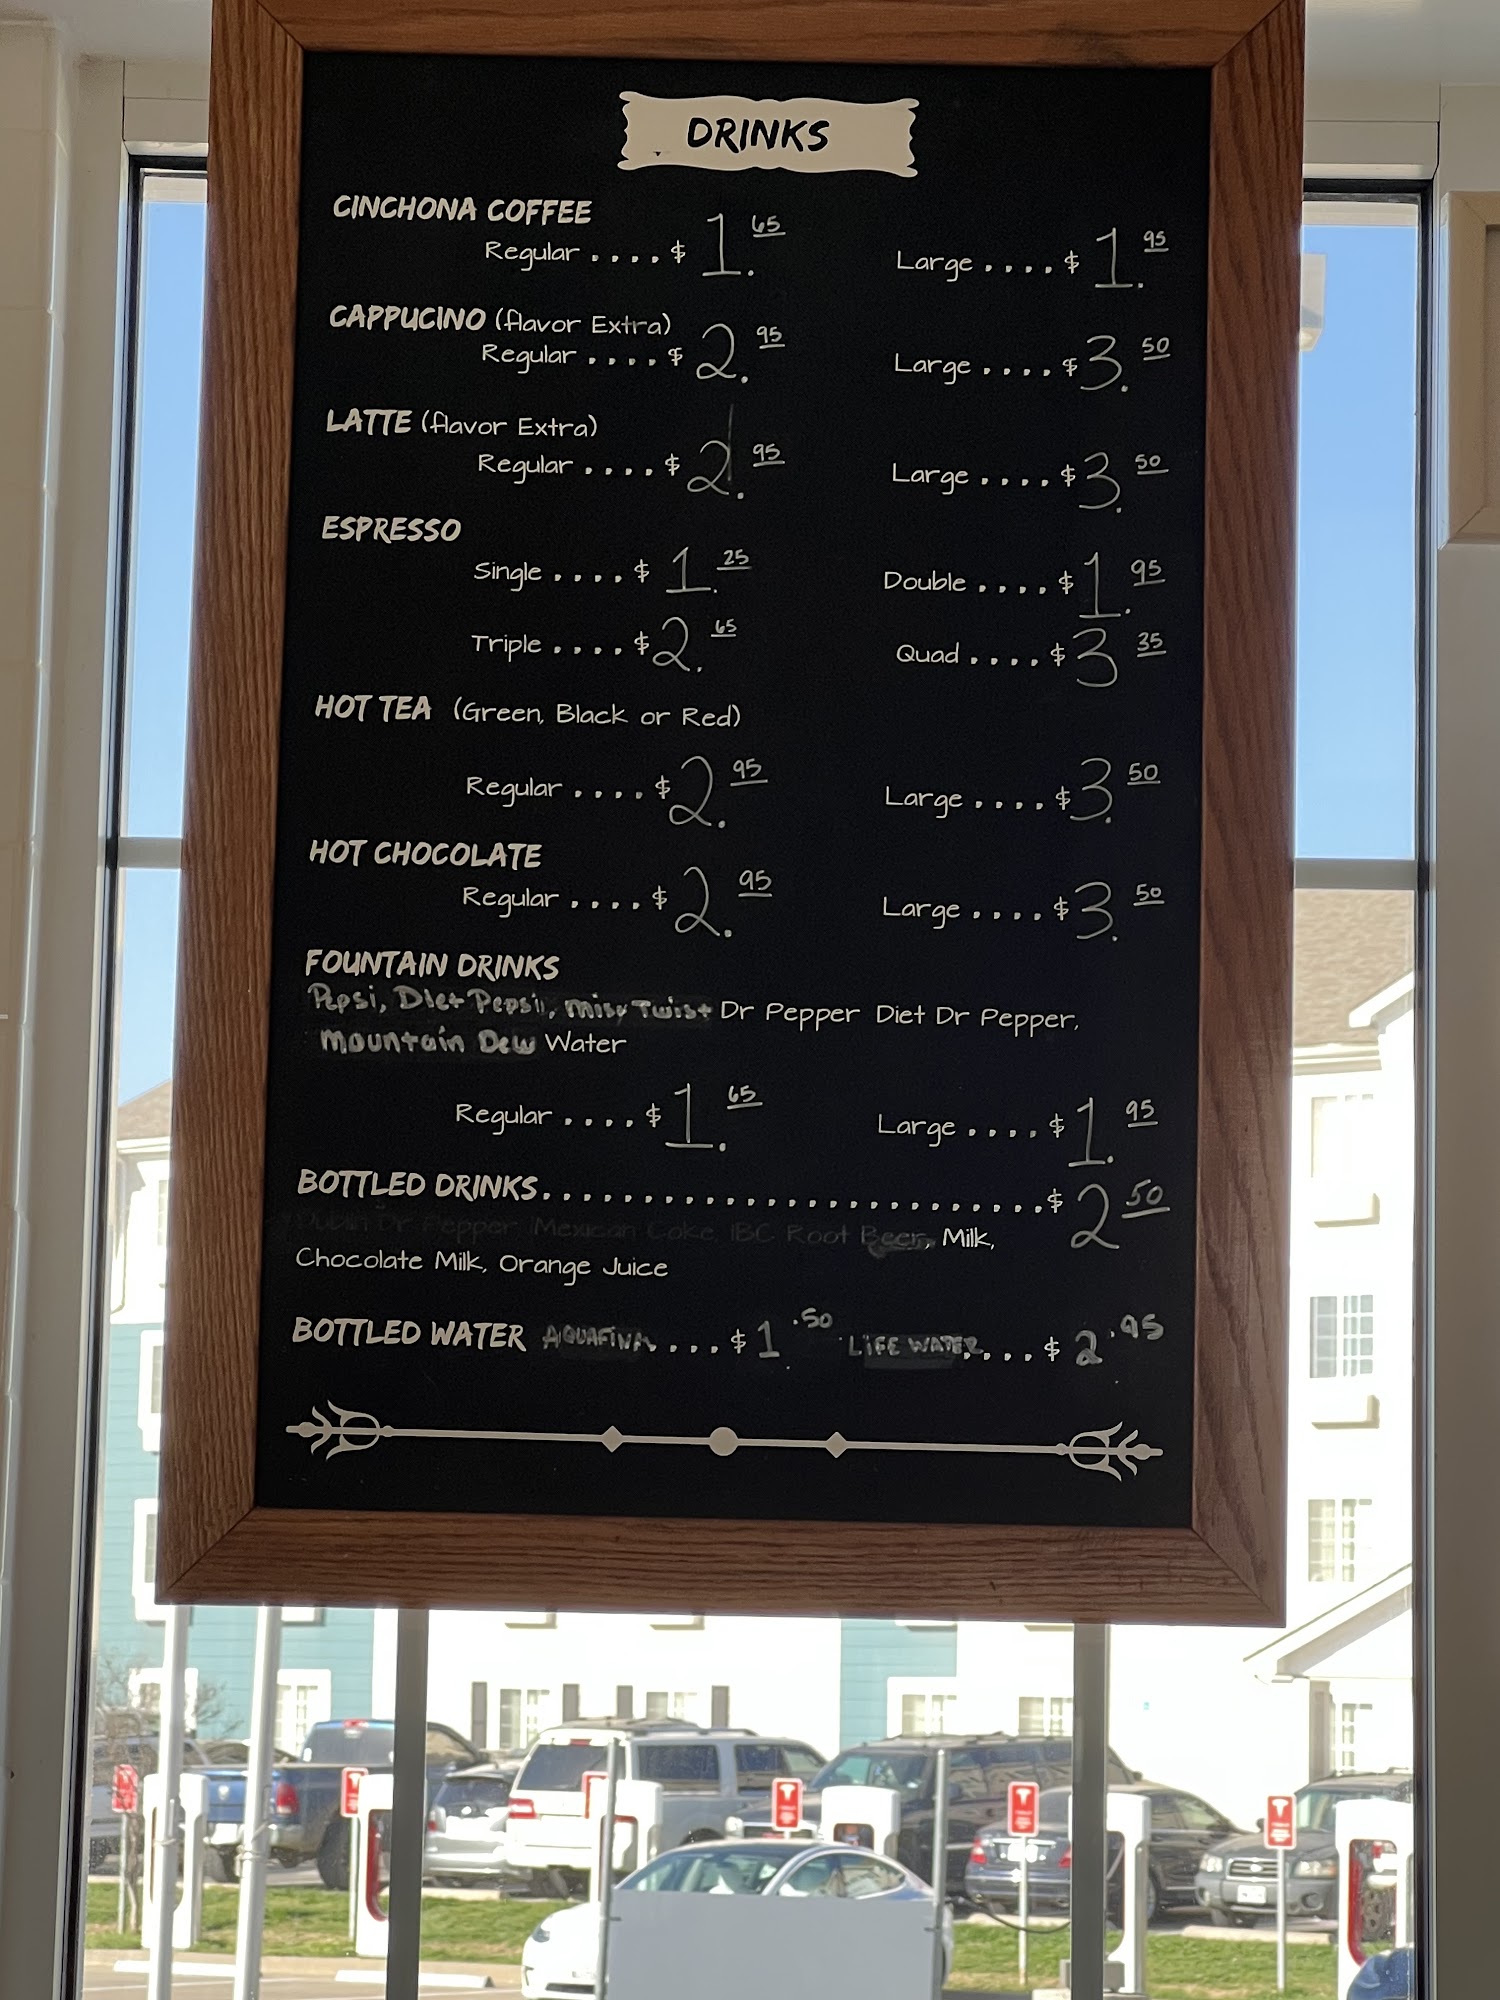 DRINKS
CINCHONA COFFEE
Regular .... $ 1.65 Large .... $ 1.95
CAPPUCINO (flavor Extra)
Regular .... $ 2.95 Large .... $ 3.50
LATTE (flavor Extra)
Regular .... $ 2.95 Large .... $ 3.50
ESPRESSO
Single .... $ 1.25 Double .... $ 1.95
Triple .... $ 2.65 Quad .... $ 3 35
HOT TEA (Green, Black or Red)
Regular .... $ 2.95 Large .... $ 3.50
HOT CHOCOLATE
Regular .... $ 2.95 Large .... $ 3.50
FOUNTAIN DRINKS
Pepsi, Diet Pepsi, Twist Dr Pepper Diet Dr Pepper,
Mountain Dew Water
Regular .... $ 1.65 Large .... $ 1.95
BOTTLED DRINKS........................ $ 2 50
Dublin Dr Pepper Mexican Coke, IBC Root Beer, Milk,
Chocolate Milk, Orange Juice
BOTTLED WATER AQUAFINA ... $ 1.50 LIFE WATER .... $ 2.95